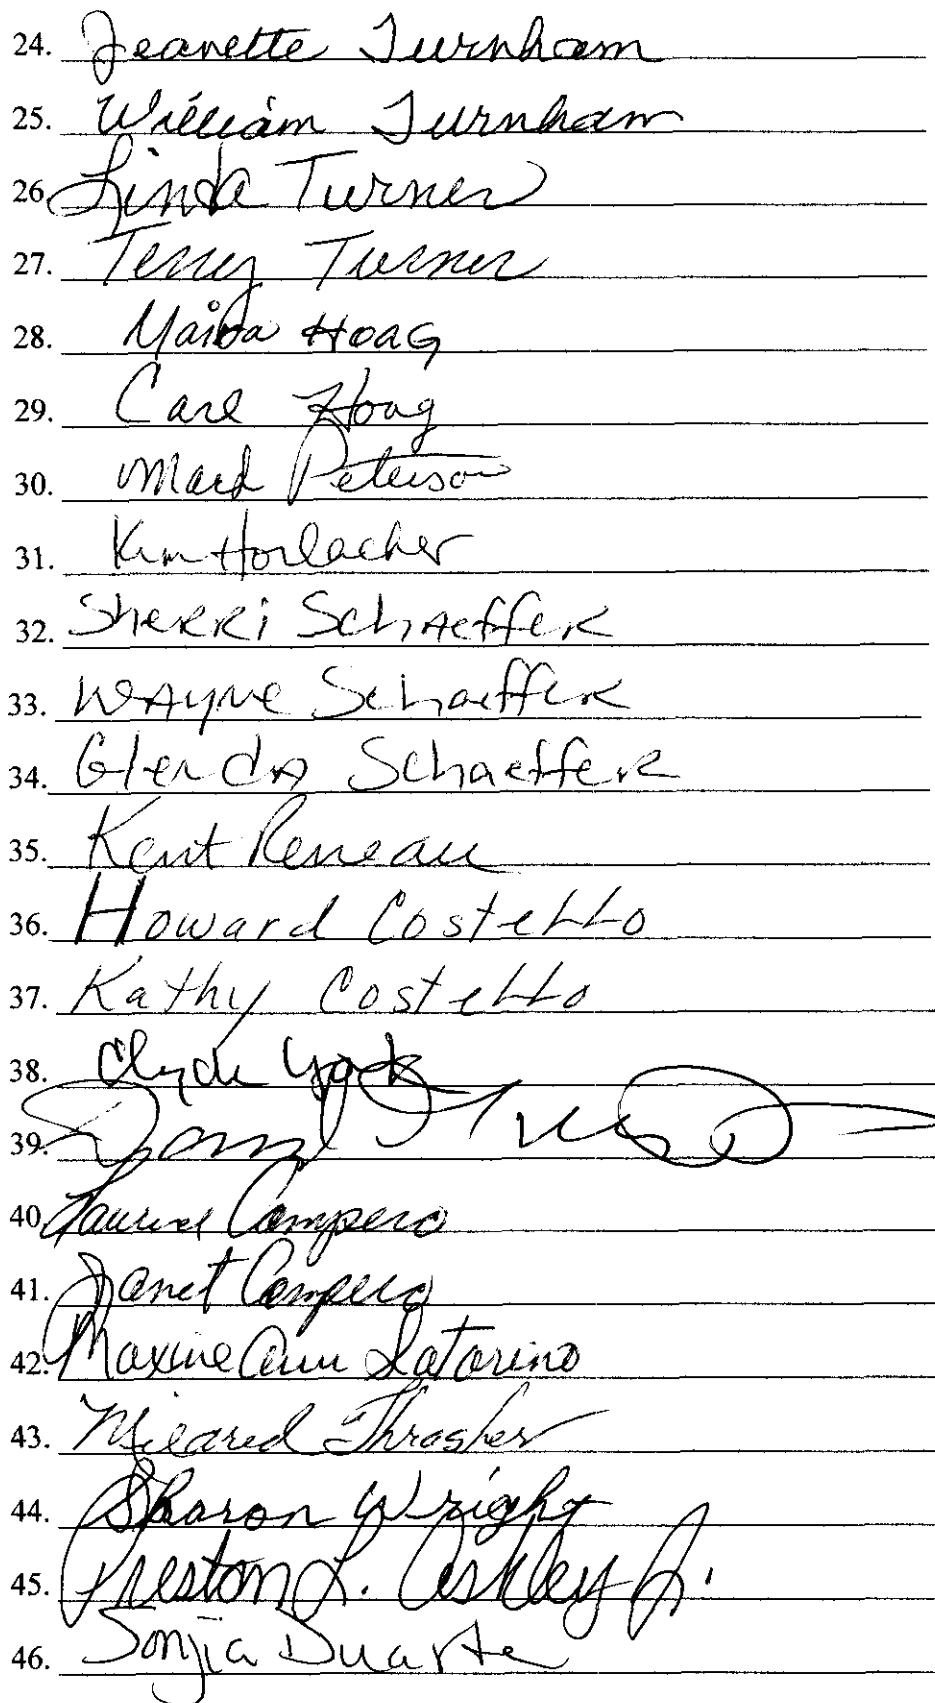 24. Jeanette Turnham
25. William Turnham
26. Linda Turner
27. Terry Turner
28. Hoag
29. Carl Hoag
30. Mark Peterson
31. Kim Horlacher
32. Sherri Schaeffer
33. Wayne Schaeffer
34. Glenda Schaeffer
35. Kent Reneau
36. Howard Costello
37. Kathy Costello
38. Clyde York
39.
40. Campero
41. Janet Campero
42. Maxine Ann Latorino
43. Mildred Thrasher
44. Sharon Wright
45. Preston L. Ashley Jr.
46. Sonjia Duarte